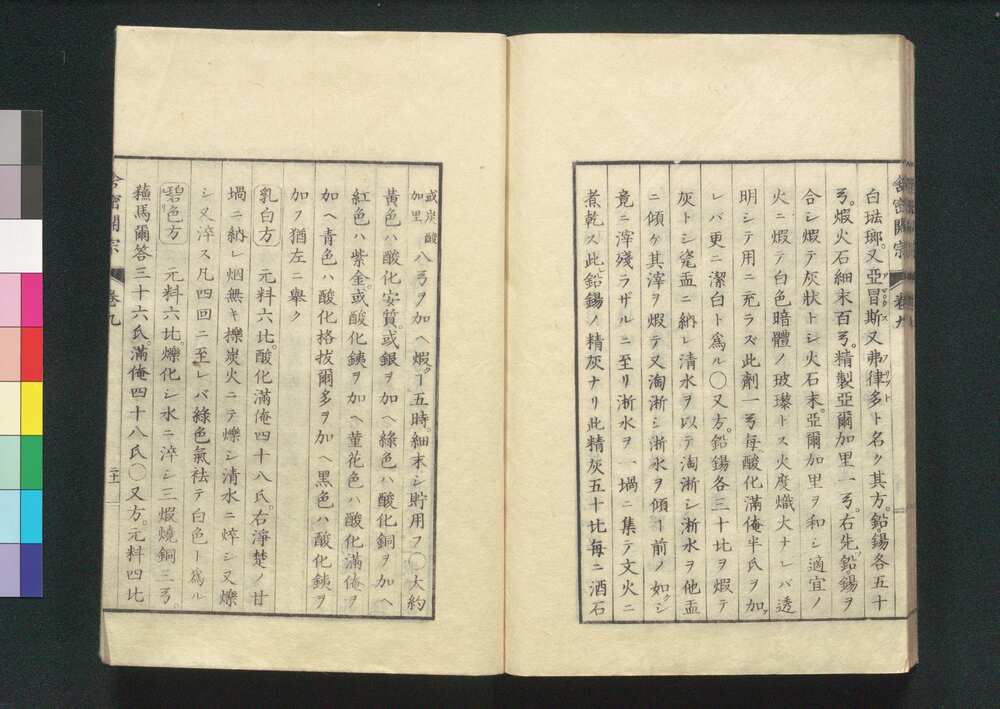 白琺瑯。又亞冒斯又弗律多ト名ク其方。鉛錫各五十
弓。煆火石細末百弓。精製亞爾加里一弓。右先ヅ鉛錫ヲ
合シ煆テ灰狀トシ火石末。亞爾加里ヲ和シ適宜ノ
火ニ煆テ白色暗體ノ玻瓈トス火度熾大ナレバ透
明シテ用ニ充ラズ此劑一弓毎ニ酸化滿俺半氏ヲ加フ
レバ更ニ潔白ト爲ル〇又方。鉛錫各三十比ヲ煆テ
灰トシ瓷盂ニ納レ清水ヲ以テ淘淅シ淅水ヲ他盂
ニ傾ケ其滓ヲ煆テ又淘淅シ淅水ヲ傾ー前ノ如クシ
竟ニ滓殘ラザルニ至リ淅水ヲ一堝ニ集テ文火ニ
煮乾ス此レ鉛錫ノ精灰ナリ此精灰五十比毎ニ酒石
舍密開宗 卷九
或炭酸加里 八弓ヲ加ヘ煆クー五時。細末シ貯用フ〇大約
黃色ハ酸化安質。或銀ヲ加ヘ綠色ハ酸化銅ヲ加ヘ
紅色ハ紫金。或酸化銕ヲ加ヘ菫花色ハ酸化滿俺ヲ
加ヘ青色ハ酸化格拔爾多ヲ加ヘ黑色ハ酸化銕ヲ
加フ猶左ニ擧ク
乳白方 元料六比。酸化滿俺四十八氏。右淨楚ノ甘
堝ニ納レ烟無キ擽炭火ニテ爍シ清水ニ焠シ又爍
シ又淬ス凡四回ニ至レバ綠色氣祛テ白色ト爲ル
碧色方 元料六比。爍化シ水ニ淬シ三煆燒銅三弓。
蘓馬爾答三十六氏。滿俺四十八氏〇又方。元料四比
舍密開宗 卷九 二十一